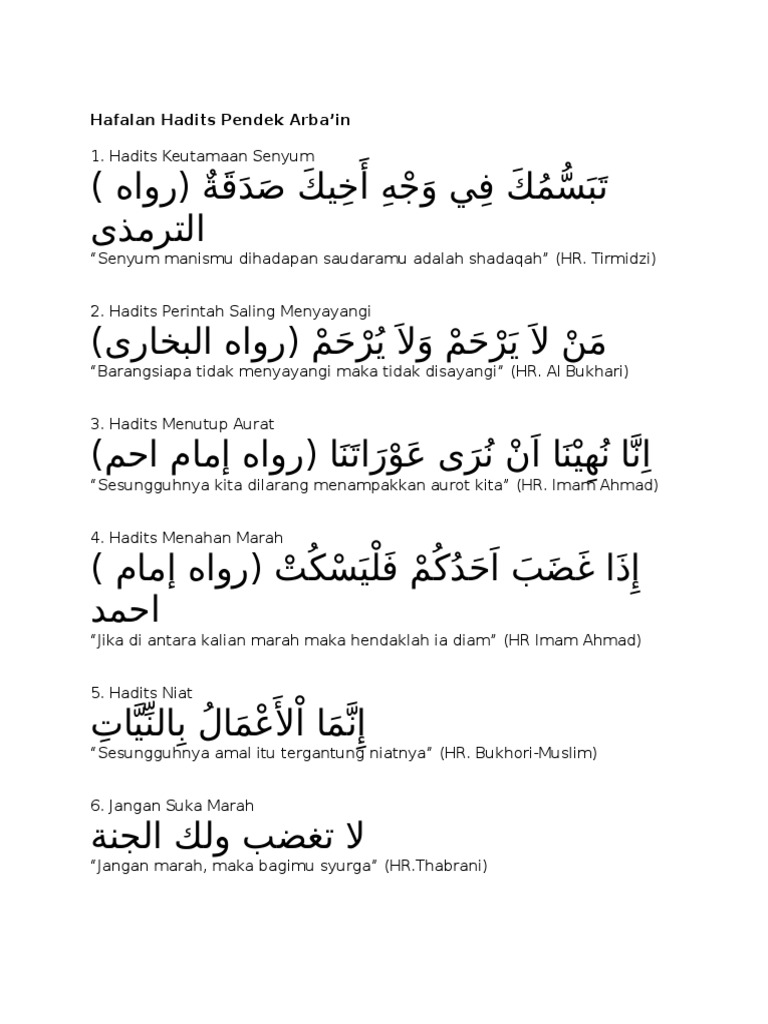 Hafalan Hadits Pendek Arba’in
1. Hadits Keutamaan Senyum
تَبَسُّمُكَ فِي وَجْهِ أَخِيكَ صَدَقَةٌ (رواه (
الترمذى
“Senyum manismu dihadapan saudaramu adalah shadaqah” (HR. Tirmidzi)
2. Hadits Perintah Saling Menyayangi
مَنْ لاَ يَرْحَمْ وَلاَ يُرْحَمْ (رواه البخارى)
“Barangsiapa tidak menyayangi maka tidak disayangi” (HR. Al Bukhari)
3. Hadits Menutup Aurat
اِنَّا نُهِيْنَا اَنْ نُرَى عَوْرَاتَنَا (رواه إمام احم)
“Sesungguhnya kita dilarang menampakkan aurot kita” (HR. Imam Ahmad)
4. Hadits Menahan Marah
إِذَا غَضَبَ اَحَدُكُمْ فَلْيَسْكُتْ (رواه إمام (
احمد
“Jika di antara kalian marah maka hendaklah ia diam” (HR Imam Ahmad)
5. Hadits Niat
إِنَّمَا اْلأَعْمَالُ بِالنِّيَّاتِ
“Sesungguhnya amal itu tergantung niatnya” (HR. Bukhori-Muslim)
6. Jangan Suka Marah
لا تغضب ولك الجنة
“Jangan marah, maka bagimu syurga” (HR.Thabrani)